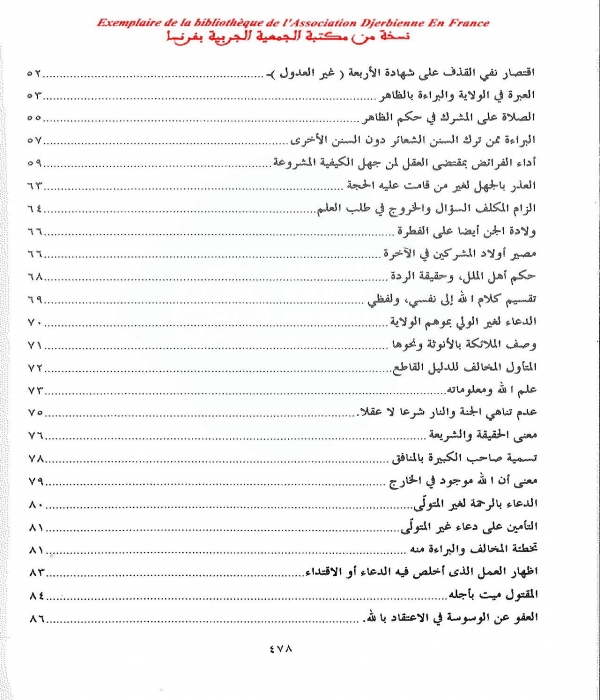 Exemplaire de la bibliothèque de l'Association Djerbienne En France
نسخة من مكتبة الجمعية الجربية بفرنسا
اقتصار نفي القذف على شهادة الأربعة ( غير العدول )ـ ٥٢
العبرة في الولاية والبراءة بالظاهر ٥٣
الصلاة على المشرك في حكم الظاهر ٥٥
البراءة ممن ترك السنن الشعائر دون السنن الأخرى ٥٧
أداء الفرائض بمقتضى العقل لمن جهل الكيفية المشروعة ٥٩
العذر بالجهل لغير من قامت عليه الحجة ٦٣
الزام المكلف السؤال والخروج في طلب العلم ٦٤
ولادة الجن أيضا على الفطرة ٦٦
مصير أولاد المشركين في الآخرة ٦٦
حكم أهل الملل، وحقيقة الردة ٦٨
تقسيم كلام الله إلى نفسي، ولفظي ٦٩
الدعاء لغير الولي بموهم الولاية ٧٠
وصف الملائكة بالأنوثة ونحوها ٧١
المتأول المخالف للدليل القاطع ٧٢
علم الله ومعلوماته ٧٣
عدم تناهي الجنة والنار شرعا لا عقلا. ٧٥
معنى الحقيقة والشريعة ٧٦
تسمية صاحب الكبيرة بالمنافق ٧٨
معنى أن الله موجود في الخارج ٧٩
الدعاء بالرحمة لغير المتولّى ٨٠
التأمين على دعاء غير المتولّى ٨١
تخطئة المخالف والبراءة منه ٨١
اظهار العمل الذى أخلص فيه الدعاء أو الاقتداء ٨٣
المقتول ميت بأجله ٨٤
العفو عن الوسوسة في الاعتقاد بالله. ٨٦
٤٧٨